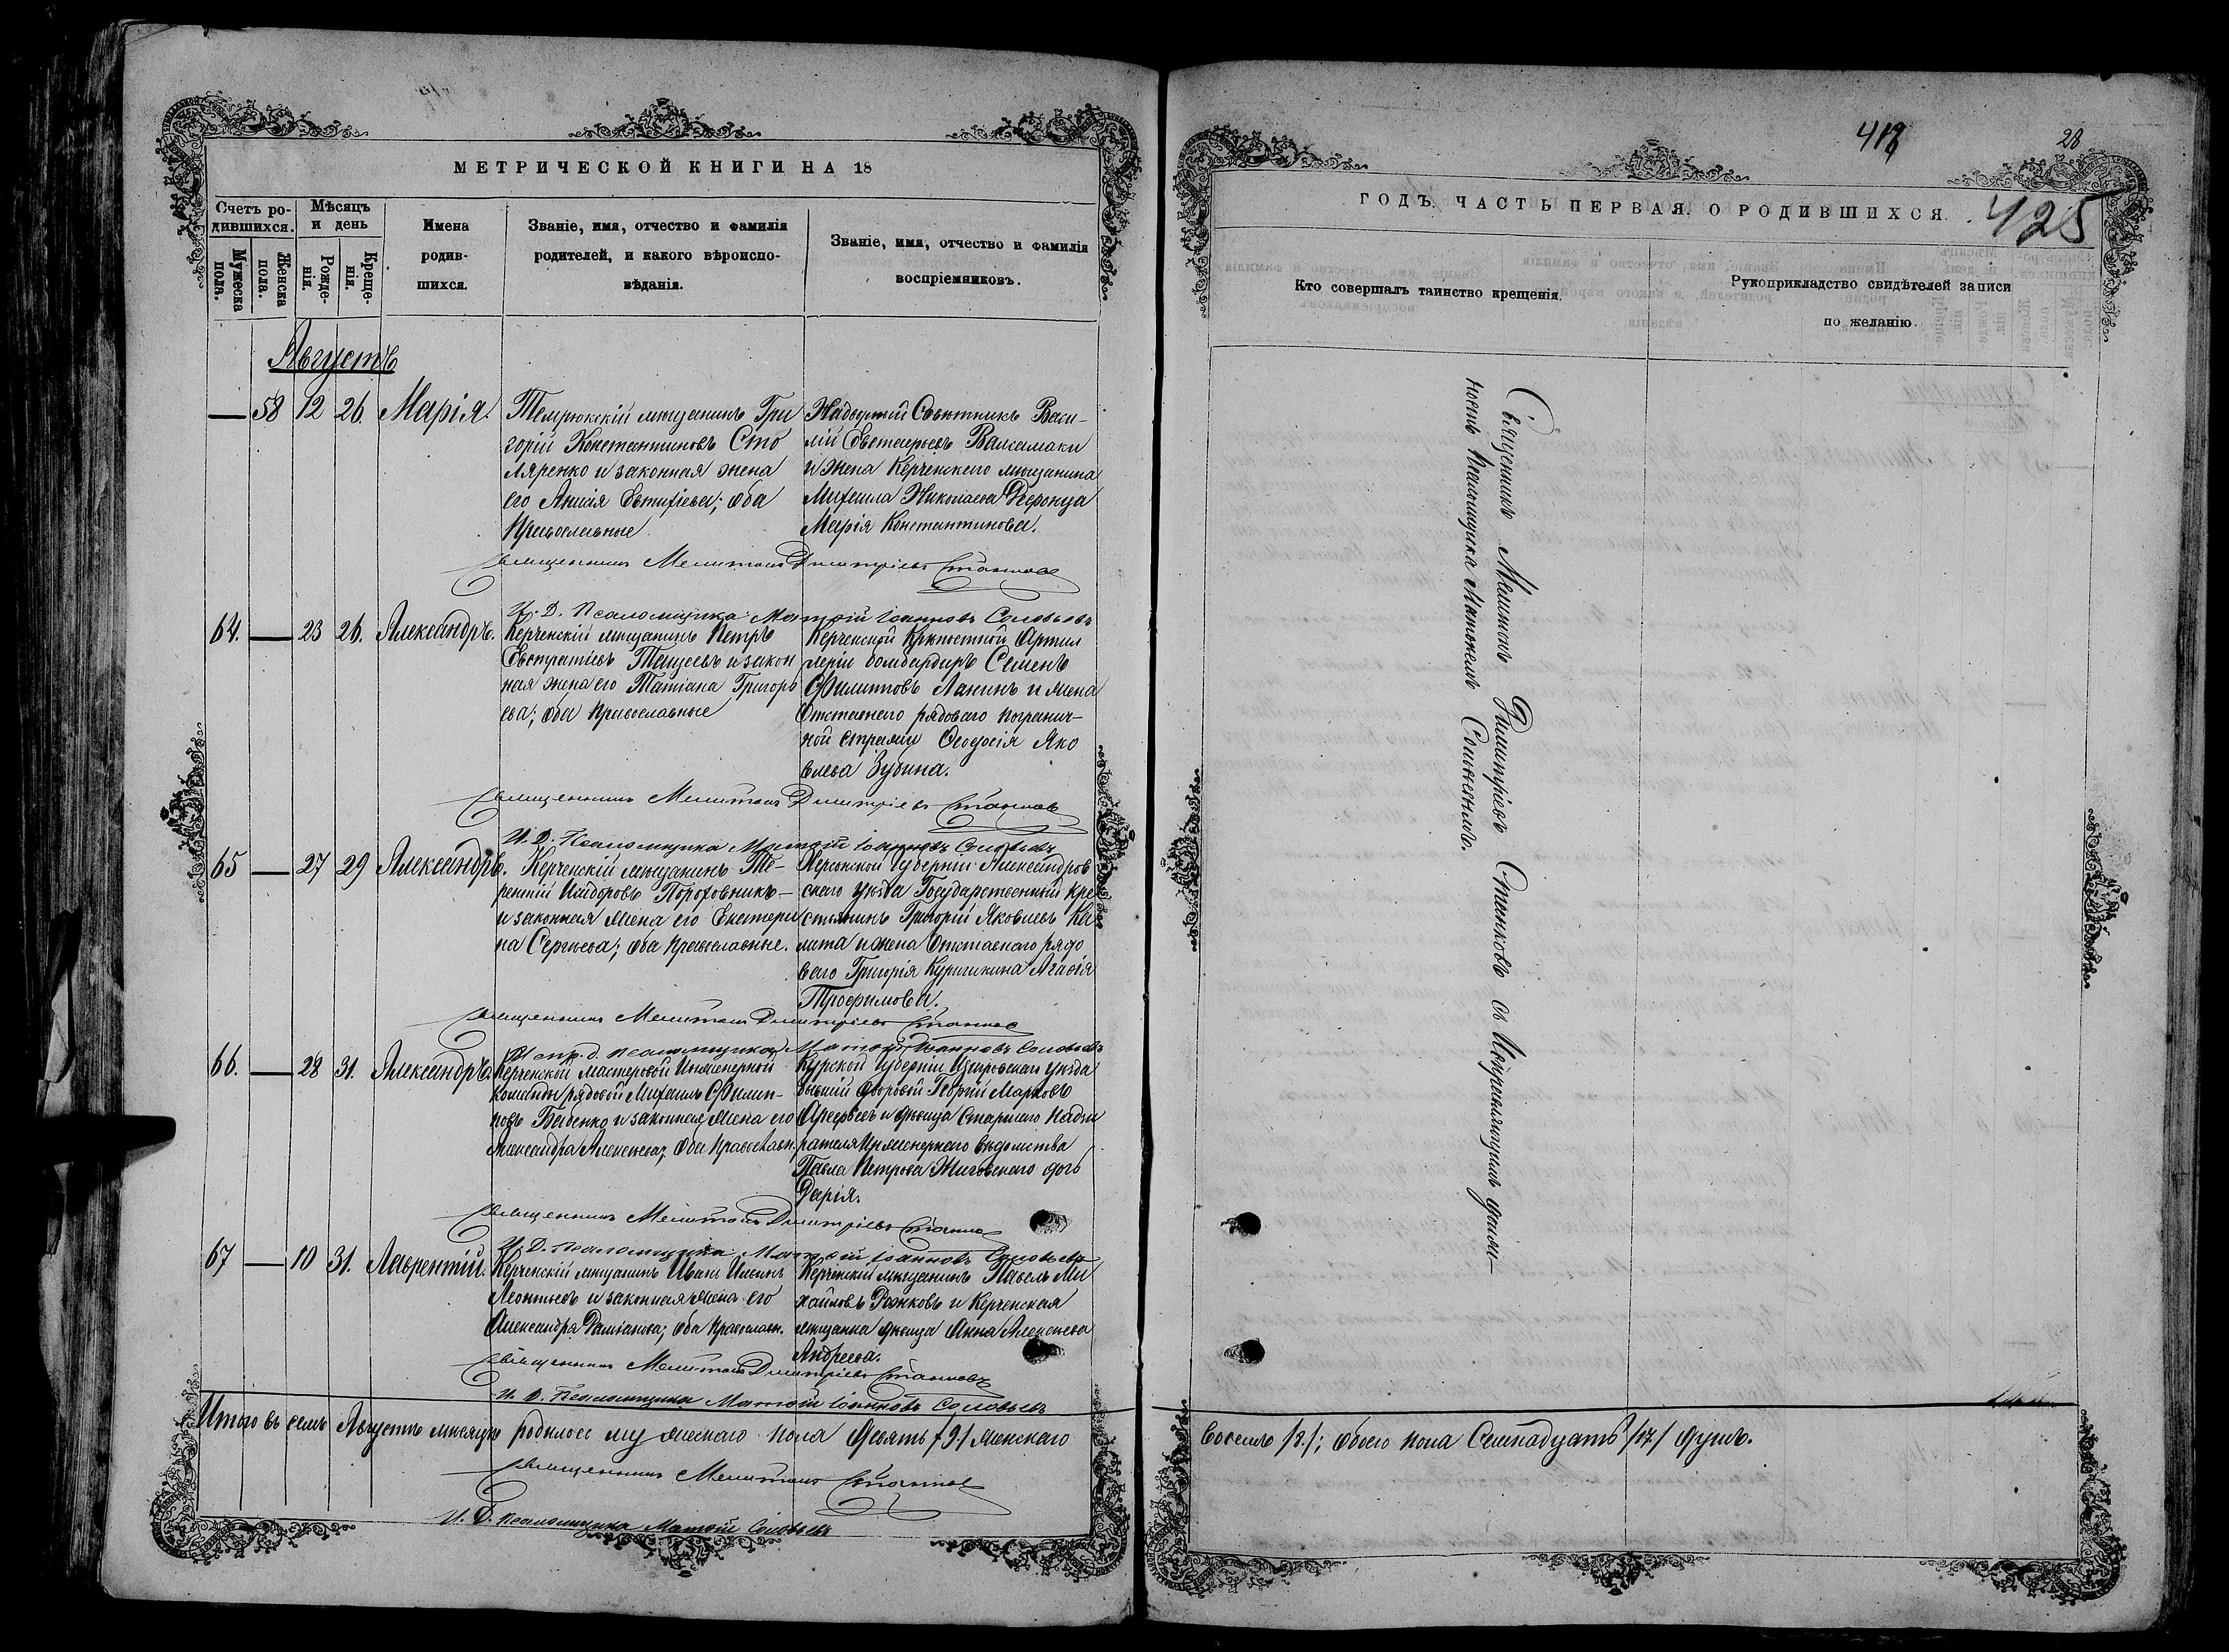 МЕТРИЧЕСКОЙ КНИГИ НА 18
Счетъ ро-
дившихся.
Мужеска
пола.
Женска
пола.
Мѣсяцъ
и день
Рожде-
нія.
Креще-
нія.
Имена
родив-
шихся.
Званіе, имя, отчество и фамилія
родителей, и какого вѣроиспо-
вѣданія.
Званіе, имя, отчество и фамилія
воспріемниковъ.
Августъ
— 58 12 26. Марія.
Темрюкскій мѣщанинъ Гри
горій Константиновъ Сто
ляренко и законная жена
его Евтихіева; оба
Православные
Надворный Совѣтникъ Васи-
лій Евстафьевъ Валсамаки
и жена Керченскаго мѣщанина
Михаила Николаева
Марія Константинова.
Священникъ Мелитонъ Димитріевъ Станковъ
И. Д. Псаломщика Матѳій Іоанновъ Соловьевъ
64. — 23 26. Александръ.
Керченскій мѣщанинъ Петръ
Евстратіевъ Тащеевъ и закон
ная жена его Татіана Григорь
ева; оба Православные
Керченской Крѣпостной Артил
леріи бомбардиръ Семенъ
Филиповъ Лапинъ и жена
Отставнаго рядоваго погранич-
ной стражи Ѳеодосія Яко
влева Зубина.
Священникъ Мелитонъ Димитріевъ Станковъ
И. Д. Псаломщика Матѳій Іоанновъ Соловьевъ
65 — 27 29 Александръ.
Керченскій мѣщанинъ Те-
рентій Исидоровъ Пороховникъ —
и законная жена его Екатери
на Сергѣева; оба Православные.
Херсонской Губерніи Александров
скаго уѣзда Государственный кре
стьянинъ Григорій Яковлевъ Ка
лата и жена Отставнаго рядо
ваго Григорія Агаѳія
Трофимова.
Священникъ Мелитонъ Димитріевъ Станковъ
Испр. д. псаломщика Матѳій Іоанновъ Соловьевъ
66. — 28 31. Александръ.
Керченской Мастеровой Инженерной
команды рядовой Михаилъ Филип-
повъ Бабенко и законная жена его
Александра Алексѣева; оба Православн.
Курской Губерніи Щигровскаго уѣзда
бывшій дворовой Георгій Марковъ
Арефьевъ и дѣвица Старшаго Надзи
рателя Инженернаго вѣдомства
Павла Петрова Жиговскаго дочь
Дарія.
Священникъ Мелитонъ Димитріевъ Станковъ
И. Д. Псаломщика Матѳій Іоанновъ Соловьевъ
67 — 10 31. Лаврентій.
Керченскій мѣщанинъ Иванъ Ильинъ
Леонтьевъ и законная жена его
Александра Даміанова; оба Православн.
Керченскій мѣщанинъ Павелъ Ми
хайловъ Рожковъ и Керченская
мѣщанка дѣвица Анна Алексѣева
Андреева.
Священникъ Мелитонъ Димитріевъ Станковъ
И. Д. Псаломщика Матѳій Іоанновъ Соловьевъ
Итого въ семъ Августѣ мѣсяцѣ родилось мужескаго пола Девять /9/ женскаго
Священникъ Мелитонъ Станковъ
И. Д. псаломщика Матѳій Соловьевъ
418
28
ГОДЪ. ЧАСТЬ ПЕРВАЯ. О РОДИВШИХСЯ.
425
Кто совершалъ таинство крещенія.
Рукоприкладство свидѣтелей записи
по желанію.
Священникъ Мелитонъ Димитріевъ Станковъ съ Исправляющимъ должн-
ность Псаломщика Матѳіемъ Соловьевымъ.
Восемь /8./; обоего пола Семнадцать /17/ душъ.